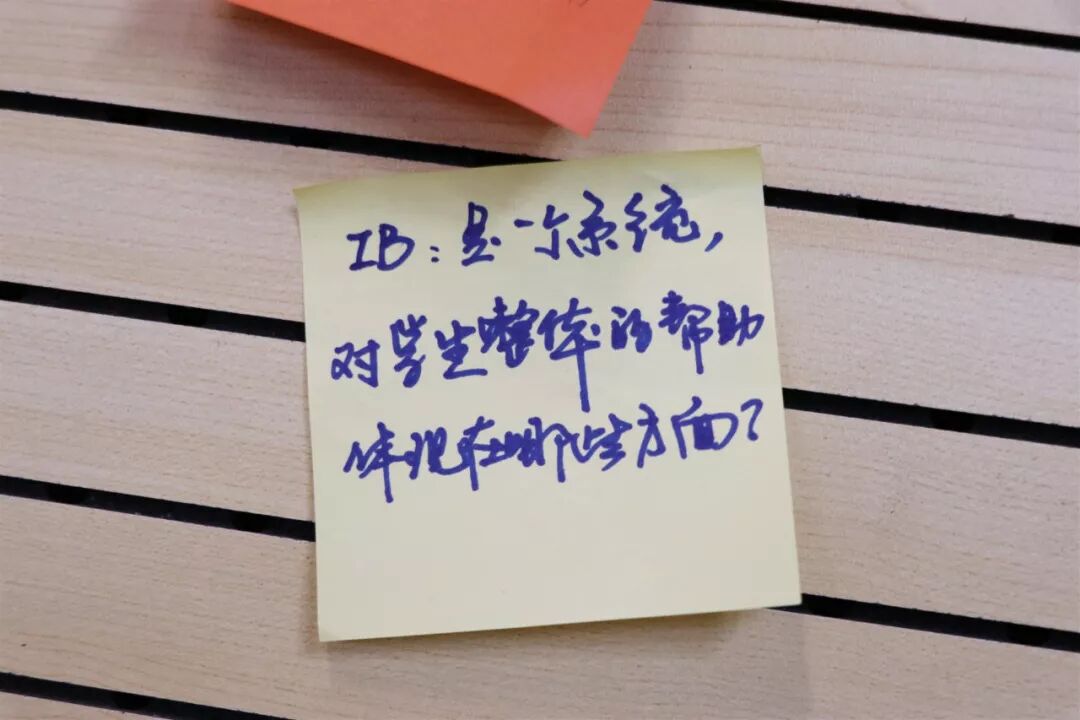 IB:是一个系统,
对学生整体的帮助
体现在哪些方面?